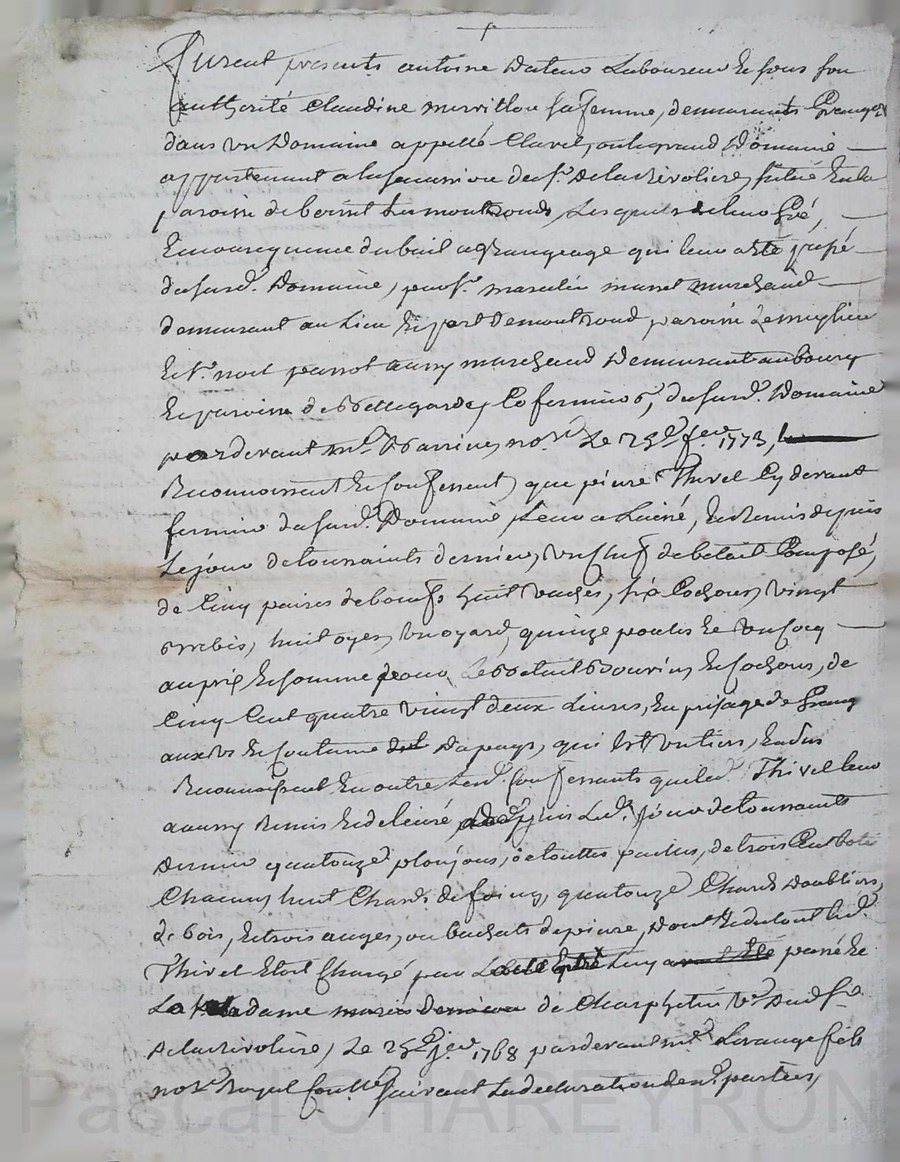 furent presents antoine Dateno Laboureur et sous son
authorité Claudine mervillon sa femme, demeurants Grangers
dans un Domaine appellé Clavel, ou le grand Domaine
appartenant a la succession de sr. Delachevoliere, situé en la
paroisse de bonnit Les montronds, Lesquels de leur Gré,
En consequence du bail a grangeage qui leur a eté passé
du susd. Domaine, par sr. marcelin marchand
demeurant au Lieu et port de montrond, paroisse de meylieu
et sr. noel perrot aussy marchand Demeurant au bourg
et paroisse de Bellegarde, Cofermiers, du susd. Domaine
par devant me. Barrieu nore. Le 25e. fev. 1773,
Reconnoissent et confessent, que pierre Thivel Cy devant
fermier du susd. Domaine Leur a Laissé, et remis depuis
Le jour de toussaints dernier, un de betail Composé,
de Cinq paires de boeufs huit vaches, six Cochons, vingt
brebis, huit oyes, un oyard, quinze poules et un Coq
au prix et somme pour Le Betail Bovin, et Cochons, de
Cinq Cent quatre vingt deux Livres, En prisage de Grang
aux us et Coutume du pays, qui est un tiers, en dus
Reconnoissent En outre Lesd. Confessants que led. Thivel leur
a aussy Remis et delivré depuis Led. jour de toussaints
Dernier quatorze , de touttes pailles, de trois Cent bote
Chacun, huit Chards de foing, quatorze Chards Doubliers,
de bois, et trois auges, ou bachats de pierre, Dont et du tout led.
Thivel Etoit Chargé par passé et
La dame de Charphetin ve. Dud sr.
Delachevoliere, Le 25e. jev. 1768 pardevant me. Lavange
nore. Royal suivant La declaration des parties,
Pascal CHAREYRON